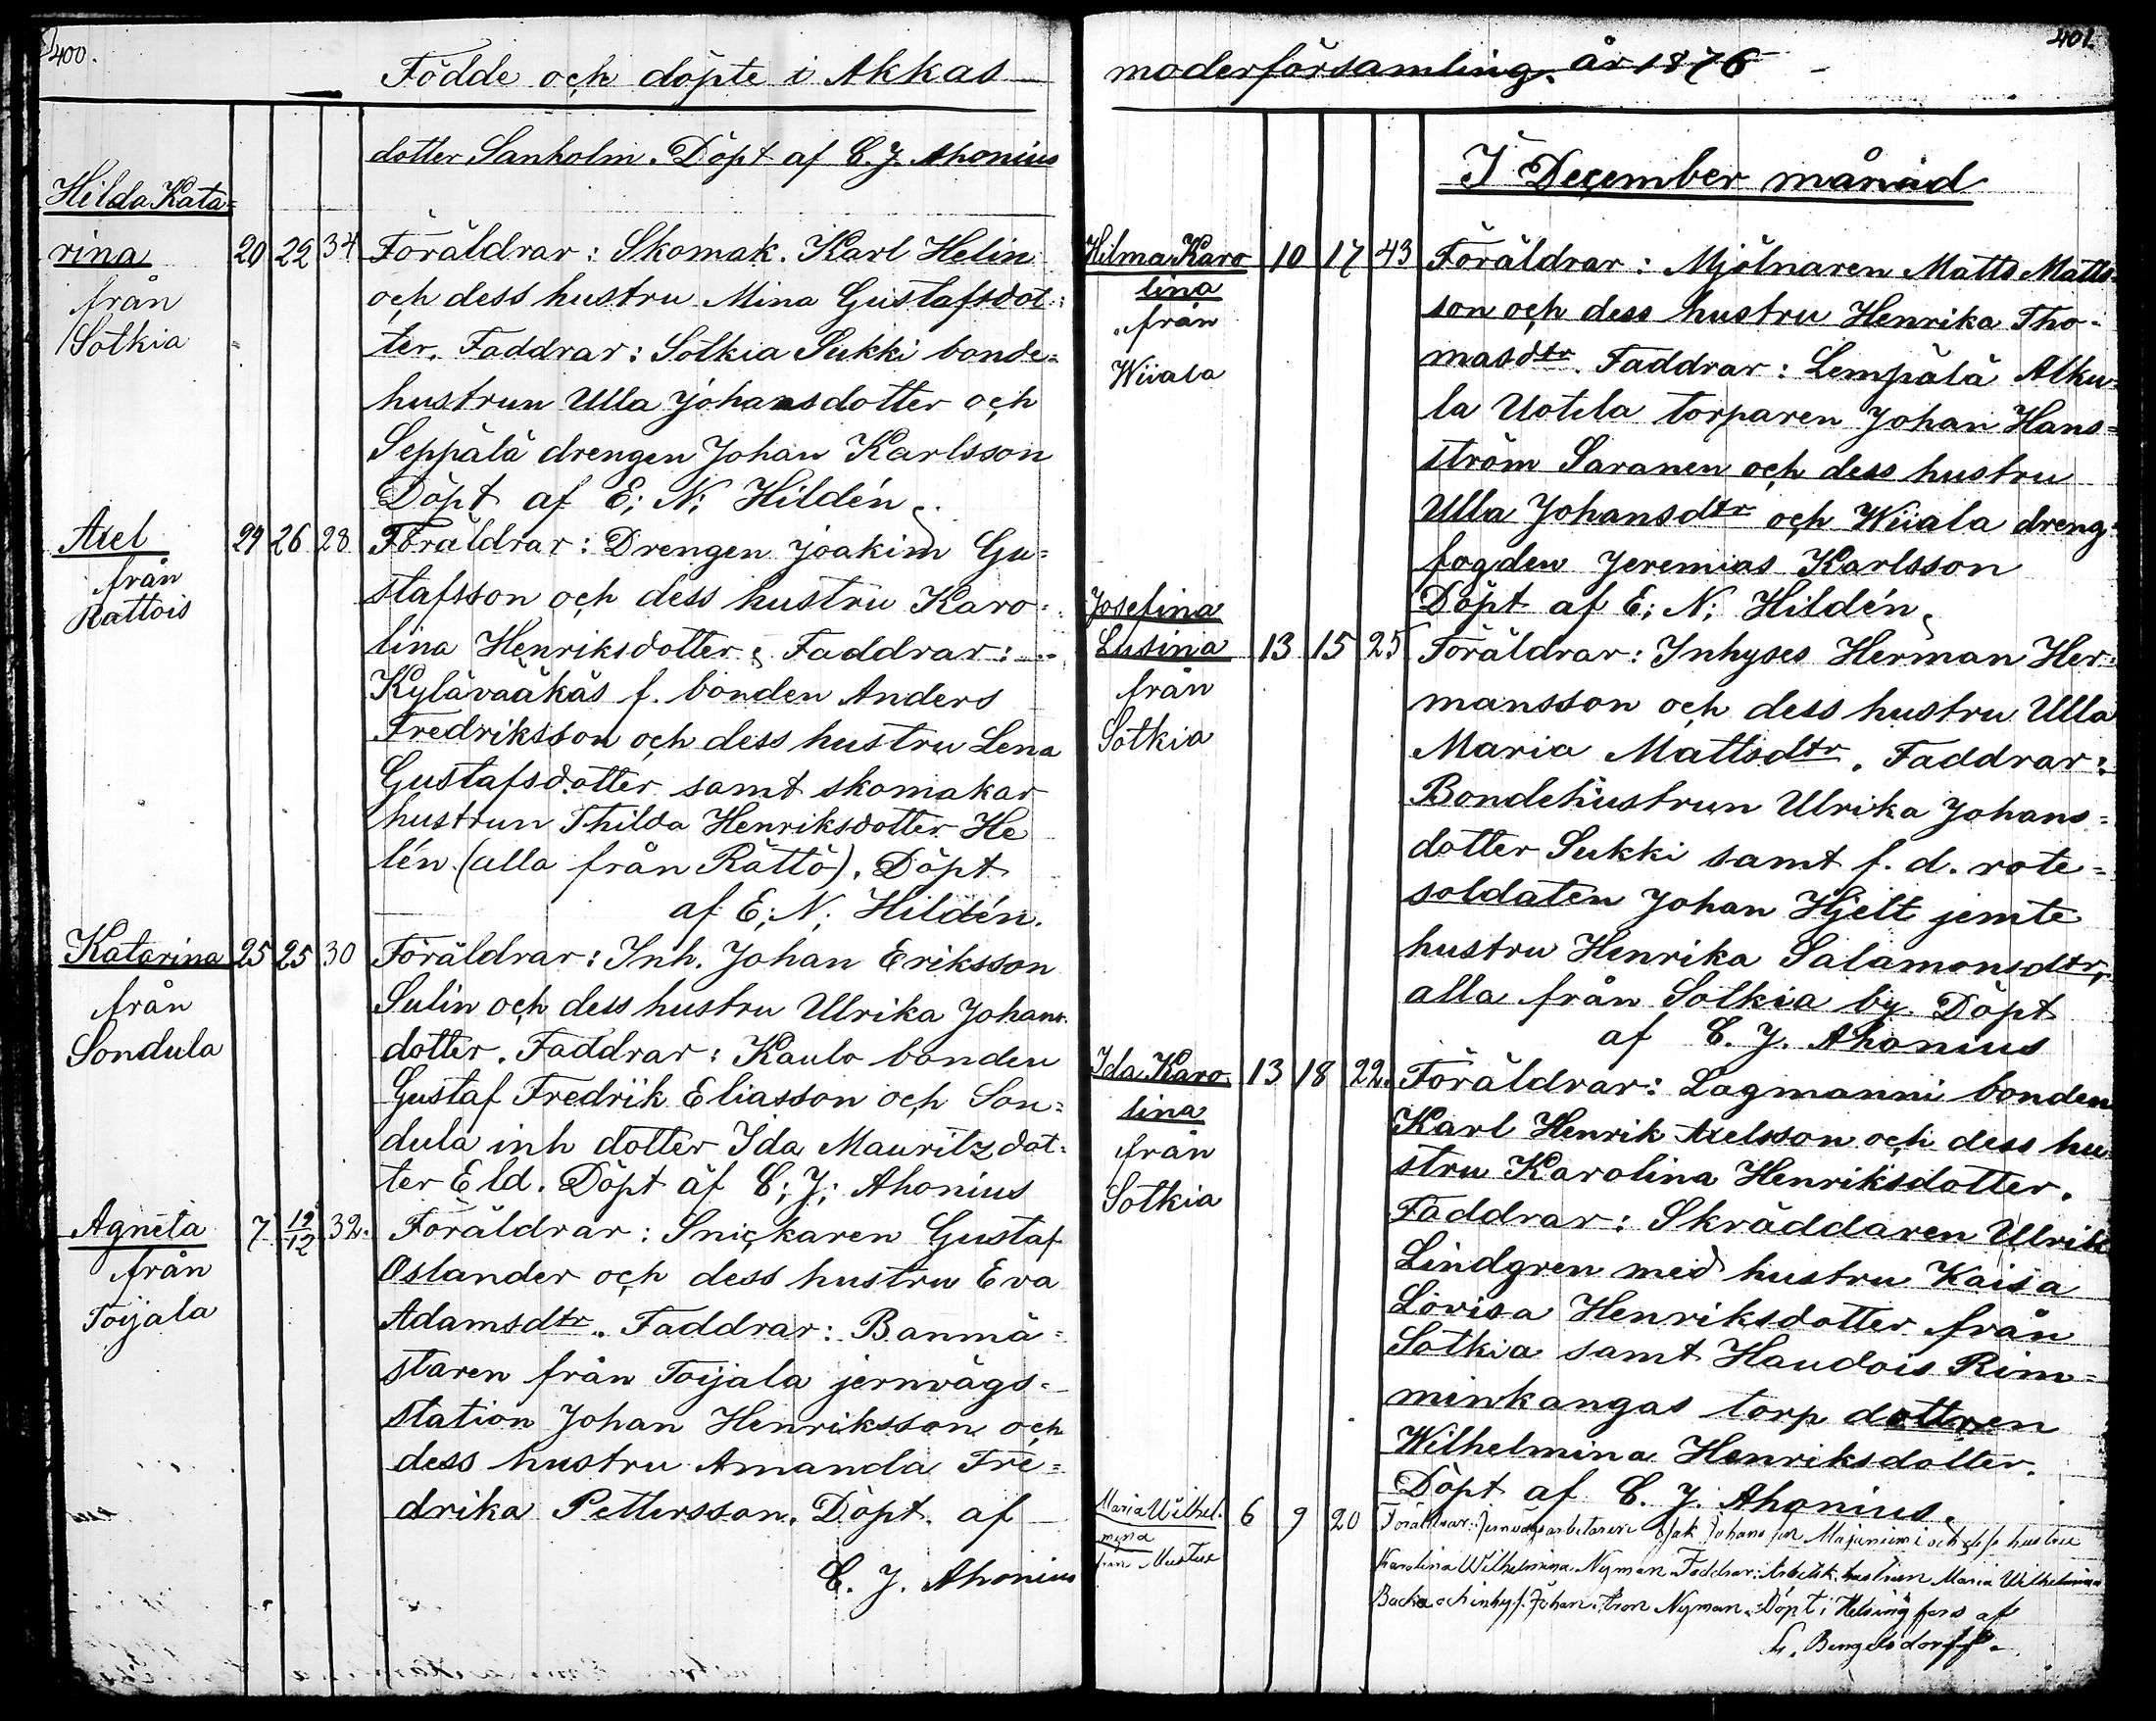 400.
Födde och döpte i Akkas
dotter Sanholm. Döpt af C. J. Ahonius
Hilda Kata=
rina 20 22 34 Föräldrar: Skomak. Karl Helin
från och dess hustru Mina Gustafsdot=
Sotkia ter. Faddrar: Sotkia Sukki bonde=
hustrun Ulla Johansdotter och
Seppälä drengen Johan Karlsson
Döpt af E; N; Hildén.
Axel 24 26 28 Föräldrar: Drengen Joakim Gu=
från stafsson och dess hustru Karo=
Rattois lina Henriksdotter. Faddrar:
Kylävaäkäs f. bonden Anders
Fredriksson och dess hustru Lena
Gustafsdotter samt skomakar
hustrun Thilda Henriksdotter He
lén (alla från Rättö). Döpt
af E; N; Hildén.
Katarina 25 25 30 Föräldrar: Inh. Johan Eriksson
från Sulin och dess hustru Ulrika Johans
Sondula dotter. Faddrar: Kaulo bonden
Gustaf Fredrik Eliasson och Son=
dula inh dotter Ida Mauritzdot=
ter Eld. Döpt af C; J; Ahonius
Agneta 7 12/12 32. Föräldrar: Snickaren Gustaf
från Oslander och dess hustru Eva
Toijala Adamsdtr. Faddrar: Banmä=
staren från Toijala jernvägs=
station Johan Henriksson och
dess hustru Amanda Fre=
drika Pettersson. Döpt af
C. J. Ahonius
401.
moderförsamling. år 1876
I December månad
Hilma Karo 10 17 43 Föräldrar: Mjölnaren Matts Matts=
lina son och dess hustru Henrika Tho=
från masdtr. Faddrar: Lempälä Alku=
Wiiala la Uotila torparen Johan Hans=
ström Saranen och dess hustru
Ulla Johansdtr och Wiiala dreng=
fogden Jeremias Karlsson
Döpt af E; N; Hildén.
Josefina
Lusina 13 15 25 Föräldrar: Inhyses Herman Her=
från mansson och dess hustru Ulla
Sotkia Maria Mattsdtr. Faddrar:
Bondehustrun Ulrika Johans=
dotter Sukki samt f. d. rote=
soldaten Johan Hjelt jemte
hustru Henrika Salamonsdtr,
alla från Sotkia by. Döpt
af C. J. Ahonius
Ida Karo 13 18 22. Föräldrar: Lagmanni bonden
lina Karl Henrik Axelsson och dess hu
från stru Karolina Henriksdotter.
Sotkia Faddrar: Skräddaren Ulrik
Lindgren med hustru Kaisa
Lovisa Henriksdotter från
Sotkia samt Haudois Rim=
minkangas torp dottren
Wilhelmina Henriksdotter.
Döpt af C. J. Ahonius.
Maria Wilhel. 6 9 20 Föräldrar: Jernvägsarbetaren Johans son och dess hustru
mina Karolina Wilhelmina Nyman. Faddrar: Arbetsk. hustrun Maria Wilhelmina
från Mustue Backa och inhys. Johan Nyman. Döpt i Helsingfors af
Bengelsdorff.